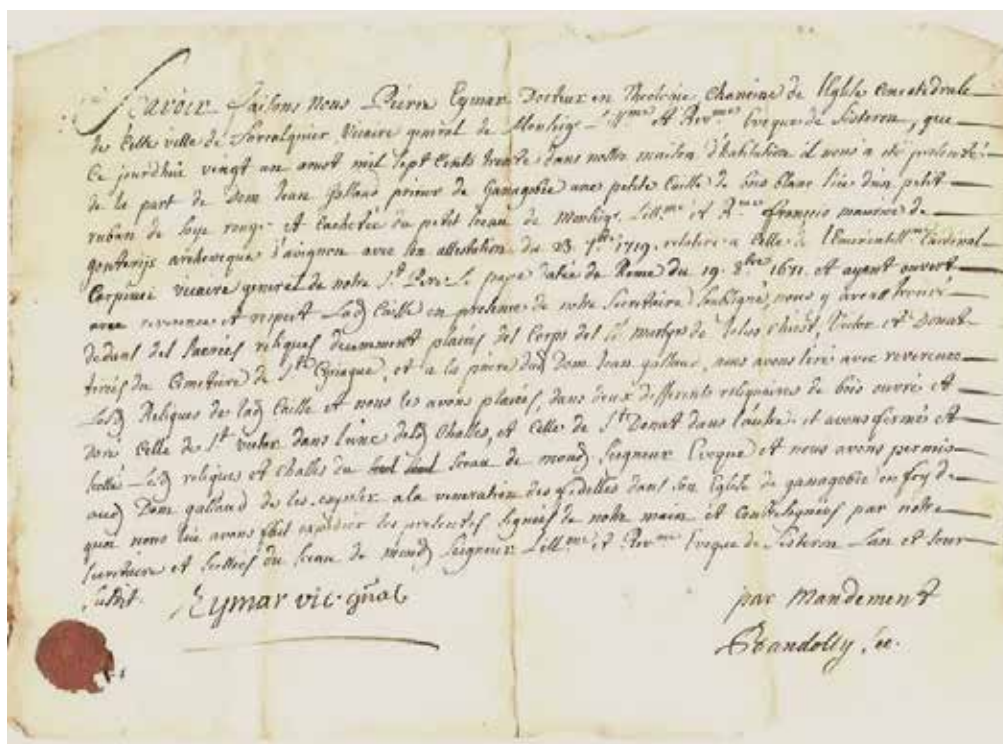 Scavoir faisons nous Pierre Eymar Docteur en Theologie Chanoine de l'Eglise Concatedrale
de cette ville de Forcalquier, Vicaire general de Monseigr. L'Ill.me et Rev.me Eveque de Sisteron, que
ce jourdhui vingt un aoust mil sept cents trente dans nottre maison d'habitation il nous a eté presenté
de la part de Dom Jean Galland prieur de Ganagobie une petite Caisse de bois blanc liée d'un petit
ruban de soye rouge et cachetée du petit sceau de Monseigr. L'ill.me et R.me françois maurice de
gonterijs archeveque d'avignon avec son attestation du 23. 7bre 1719. relative a celle de l'Eminentiss.me Cardinal
Carpinei vicaire general de notre St Pere Le pape datée de Rome du 19. 8bre 1671. et ayant ouvert
avec reverence et respect Lad Caisse en presence de notre Secretaire soubsigné, nous y avons trouvé
dedans des sacrées reliques decemment placées des Corps des SS martyrs de Jesus Christ, Victor et Donat
tirées du Cimetiere de Ste Cyriaque, et a la priere dud Dom Jean galland, nous avons tiré avec reverence
Lesd Reliques de lad Caisse et nous les avons placées, dans deux differents reliquaires de bois ouvré et
doré celle de St victor dans l'une desd Chasses, et celle de St Donat dans l'autre et avons fermés et
scellé Lesd reliques et chasses du sceau de mond Seigneur Eveque et nous avons permis
aud Dom galland de les exposer a la veneration des fidelles dans son Eglise de ganagobie en foy de
quoy nous luy avons fait expedier les presentes signées de notre main et contresignées par notre
secretaire et scellées du sceau de mond Seigneur L'ill.me et Rev.me Eveque de Sisteron L'an et jour
susdit.
Eymar vic gñal
par Mandement
Sec.